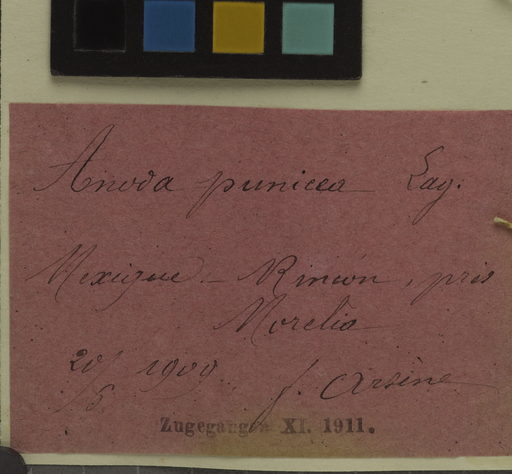 Anoda punicea Lag.
Mexique - Rincón, près
Morelia
20/ 1909
/8. f. Arsène
Zugegangen XI. 1911.